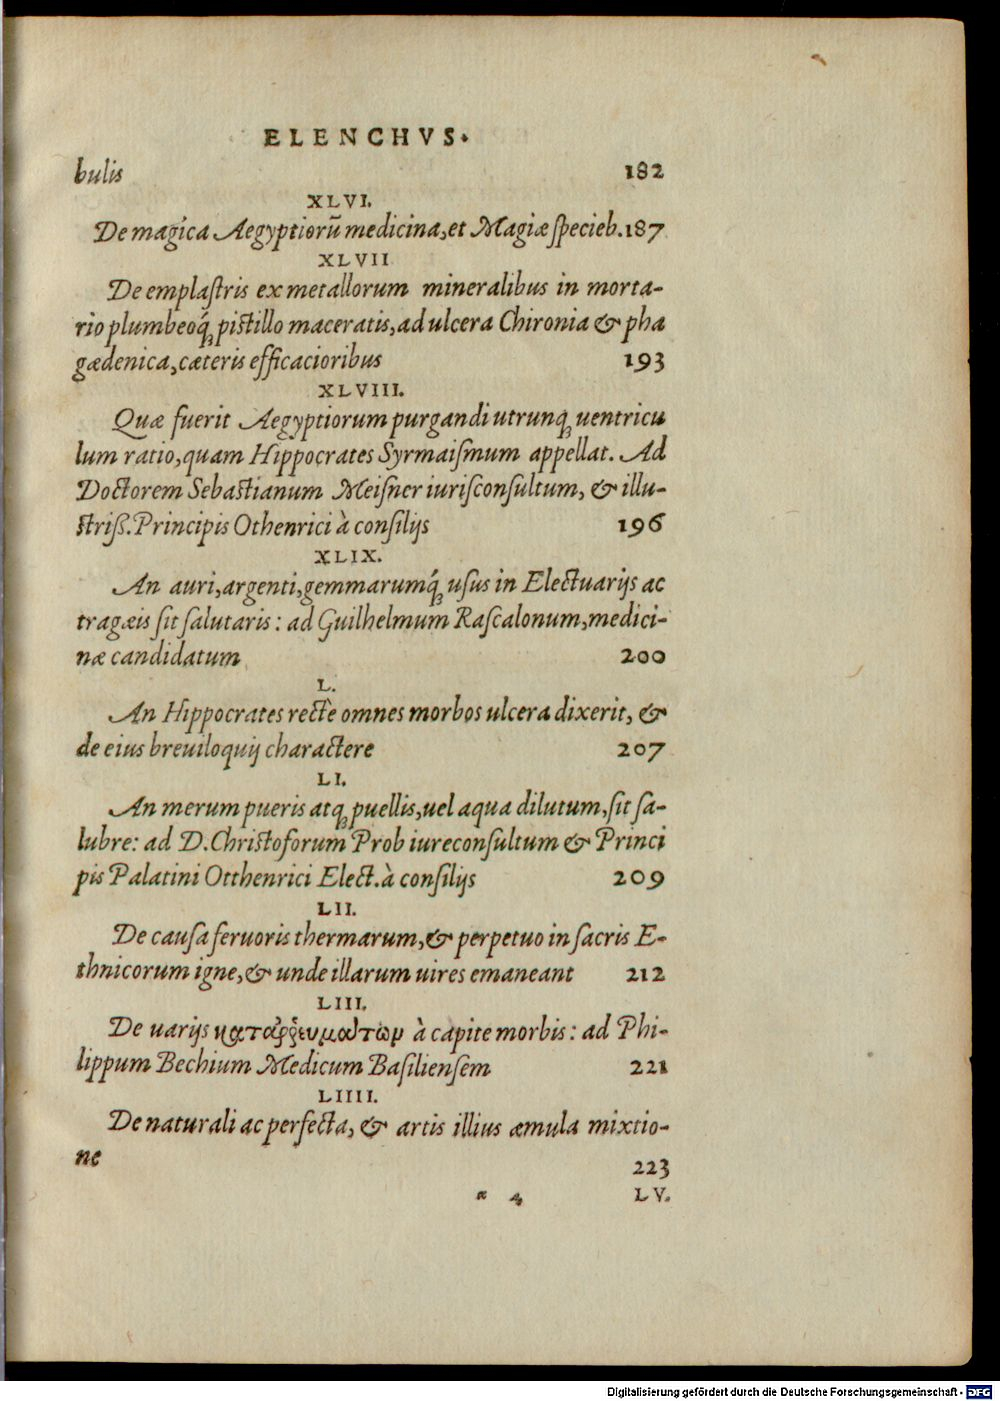 ELENCHVS.
bulis 182
XLVI.
De magica Aegyptiorū medicina, et Magiæ specieb. 187
XLVII
De emplaſtris ex metallorum mineralibus in morta-
rio plumbeoq́ꝫ piſtillo maceratis, ad ulcera Chironia & pha
gædenica, cæteris efficacioribus 193
XLVIII.
Quæ fuerit Aegyptiorum purgandi utrunqꝫ uentricu
lum ratio, quam Hippocrates Syrmaiſmum appellat. Ad
Doctorem Sebaſtianum Meiſner iuriſconſultum, & illu-
ſtriß. Principis Othenrici à conſilijs 196
XLIX.
An auri, argenti, gemmarumq́ꝫ uſus in Electuarijs ac
tragæis ſit ſalutaris: ad Guilhelmum Raſcalonum, medici-
næ candidatum 200
L.
An Hippocrates rectè omnes morbos ulcera dixerit, &
de eius breuiloquij charactere 207
LI.
An merum pueris atqꝫ puellis, uel aqua dilutum, ſit ſa-
lubre: ad D. Chriſtoforum Prob iureconſultum & Princi
pis Palatini Otthenrici Elect. à conſilijs 209
LII.
De cauſa feruoris thermarum, & perpetuo in ſacris E-
thnicorum igne, & unde illarum uires emaneant 212
LIII.
De uarijs καταῤῥευμάτων à capite morbis: ad Phi-
lippum Bechium Medicum Baſilienſem 221
LIIII.
De naturali ac perfecta, & artis illius æmula mixtio-
ne 223
* 4 LV.
Digitalisierung gefördert durch die Deutsche Forschungsgemeinschaft - DFG